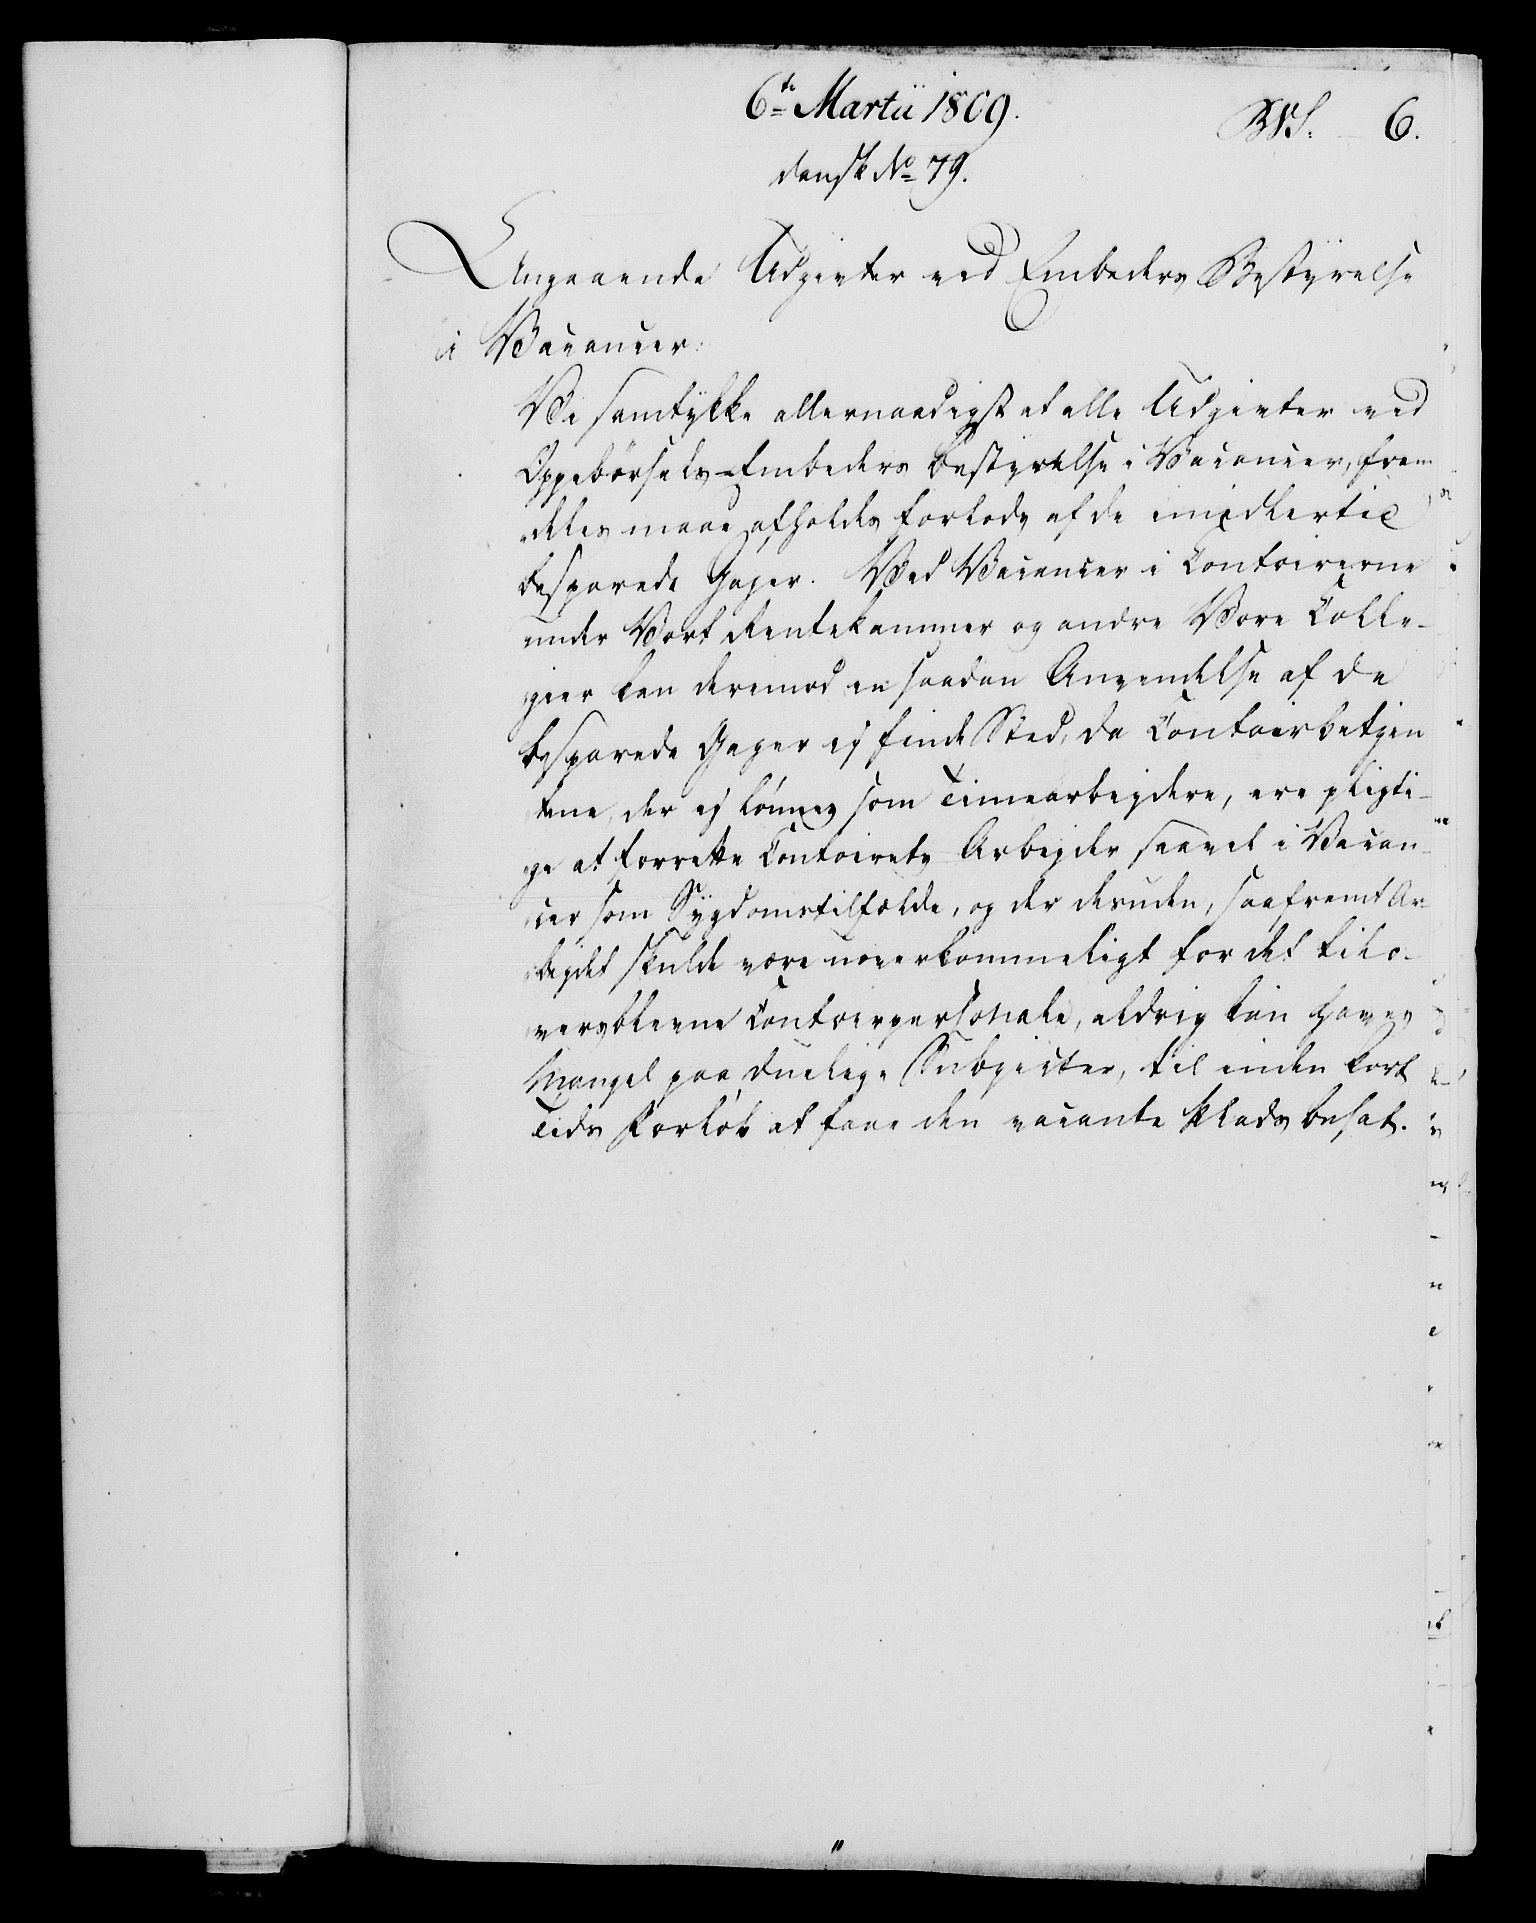 6te Martii 1809.
6.
dansk No 79.
Angaaende Udgivter ved Embeders Bestyrelse
i Vacancer.
Vi samtykke allernaadigst at alle Udgivter ved
Oppebörsels-Embeders bestyrelse i Vacancer, frem
deles maae afholdes forlods af de imidlertid
besparede Gager. Ved Vacancer i Contoirerne
under Vort Rentekammer og andre Vore Colle-
gier kan derimod en saadan Anvendelse af de
besparede Gager ej finde Sted, da Contoirbetjen
tene, der ej lönnes som Timearbejdere, ere pligti-
ge at forrette Contoirets Arbejder saavel i Vacan-
cer som Sygdomstilfælde, og der desuden, saafremt Ar-
bejdet skulde være uoverkommeligt for det tilo-
versblevne Contoirpersonale, aldrig kan haves
Mangel paa duelige Subjecter, til inden kort
Tids Forlöb at faae den vacante Plads besat.